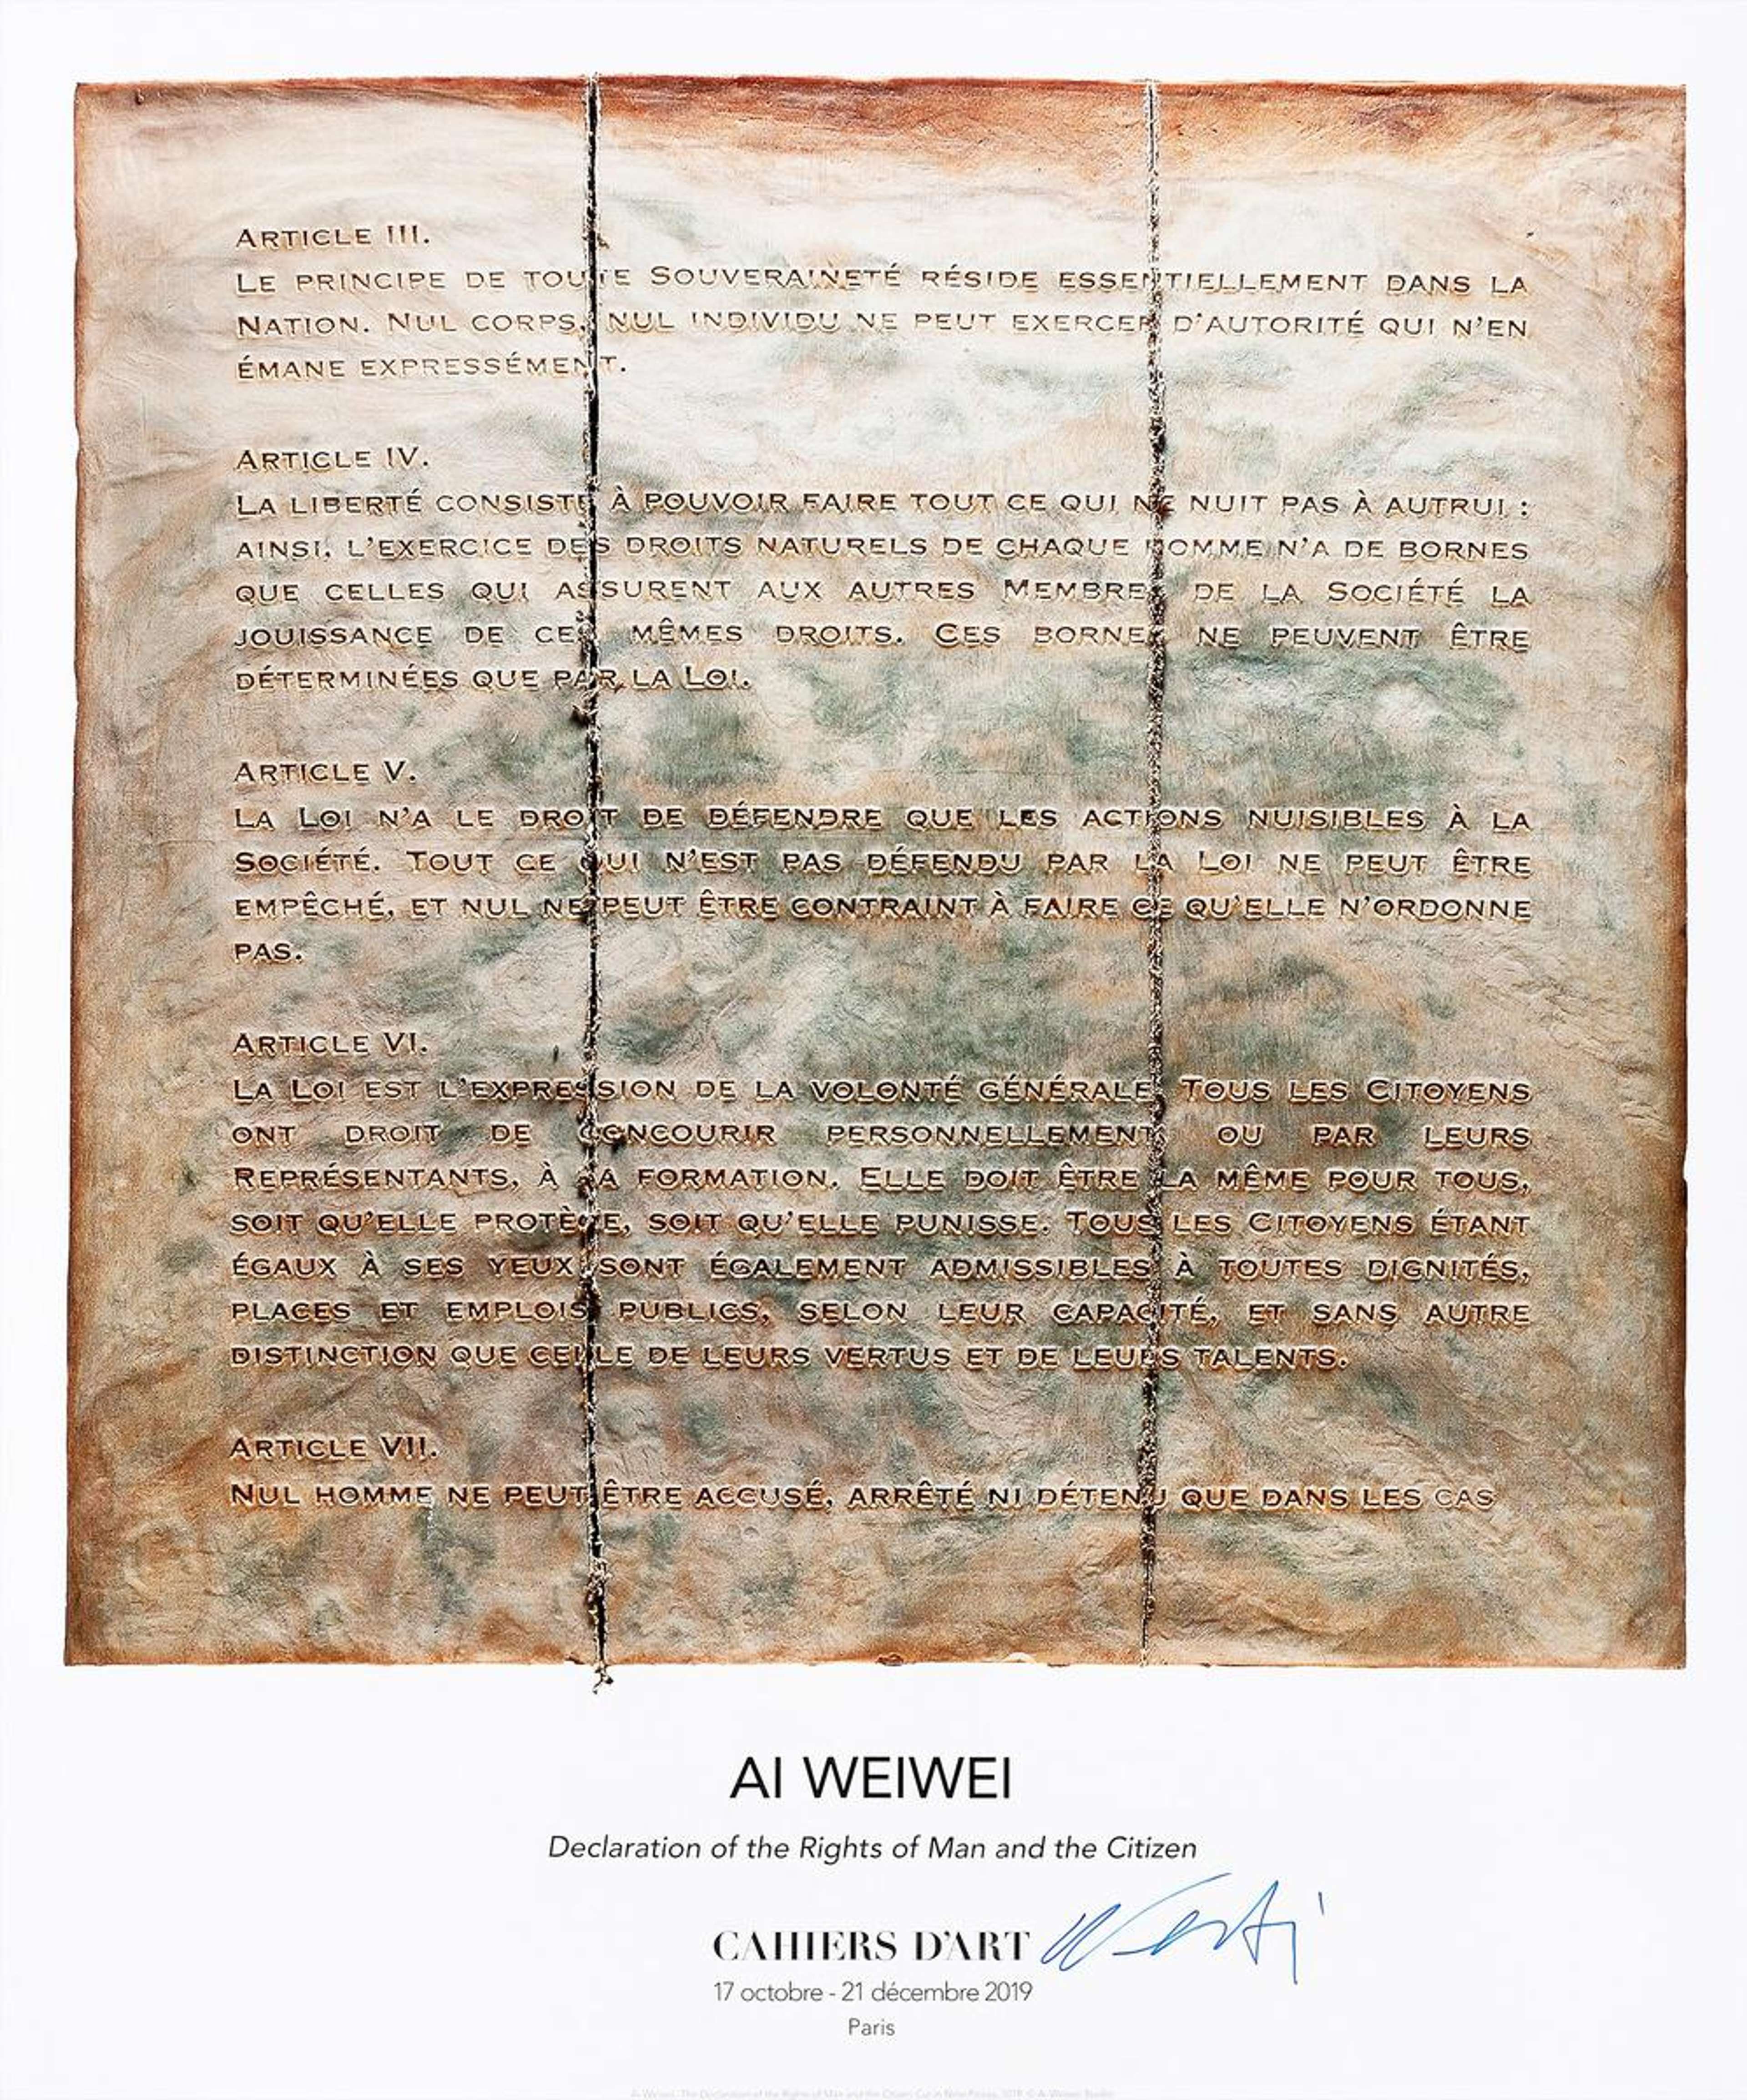 ARTICLE III.
LE PRINCIPE DE TOUTE SOUVERAINETÉ RÉSIDE ESSENTIELLEMENT DANS LA
NATION. NUL CORPS, NUL INDIVIDU NE PEUT EXERCER D'AUTORITÉ QUI N'EN
ÉMANE EXPRESSÉMENT.
ARTICLE IV.
LA LIBERTÉ CONSISTE À POUVOIR FAIRE TOUT CE QUI NE NUIT PAS À AUTRUI :
AINSI, L'EXERCICE DES DROITS NATURELS DE CHAQUE HOMME N'A DE BORNES
QUE CELLES QUI ASSURENT AUX AUTRES MEMBRES DE LA SOCIÉTÉ LA
JOUISSANCE DE CES MÊMES DROITS. CES BORNES NE PEUVENT ÊTRE
DÉTERMINÉES QUE PAR LA LOI.
ARTICLE V.
LA LOI N'A LE DROIT DE DÉFENDRE QUE LES ACTIONS NUISIBLES À LA
SOCIÉTÉ. TOUT CE QUI N'EST PAS DÉFENDU PAR LA LOI NE PEUT ÊTRE
EMPÊCHÉ, ET NUL NE PEUT ÊTRE CONTRAINT À FAIRE CE QU'ELLE N'ORDONNE
PAS.
ARTICLE VI.
LA LOI EST L'EXPRESSION DE LA VOLONTÉ GÉNÉRALE. TOUS LES CITOYENS
ONT DROIT DE CONCOURIR PERSONNELLEMENT, OU PAR LEURS
REPRÉSENTANTS, À SA FORMATION. ELLE DOIT ÊTRE LA MÊME POUR TOUS,
SOIT QU'ELLE PROTÈGE, SOIT QU'ELLE PUNISSE. TOUS LES CITOYENS ÉTANT
ÉGAUX À SES YEUX SONT ÉGALEMENT ADMISSIBLES À TOUTES DIGNITÉS,
PLACES ET EMPLOIS PUBLICS, SELON LEUR CAPACITÉ, ET SANS AUTRE
DISTINCTION QUE CELLE DE LEURS VERTUS ET DE LEURS TALENTS.
ARTICLE VII.
NUL HOMME NE PEUT ÊTRE ACCUSÉ, ARRÊTÉ NI DÉTENU QUE DANS LES CAS
AI WEIWEI
Declaration of the Rights of Man and the Citizen
CAHIERS D'ART
17 octobre - 21 décembre 2019
Paris